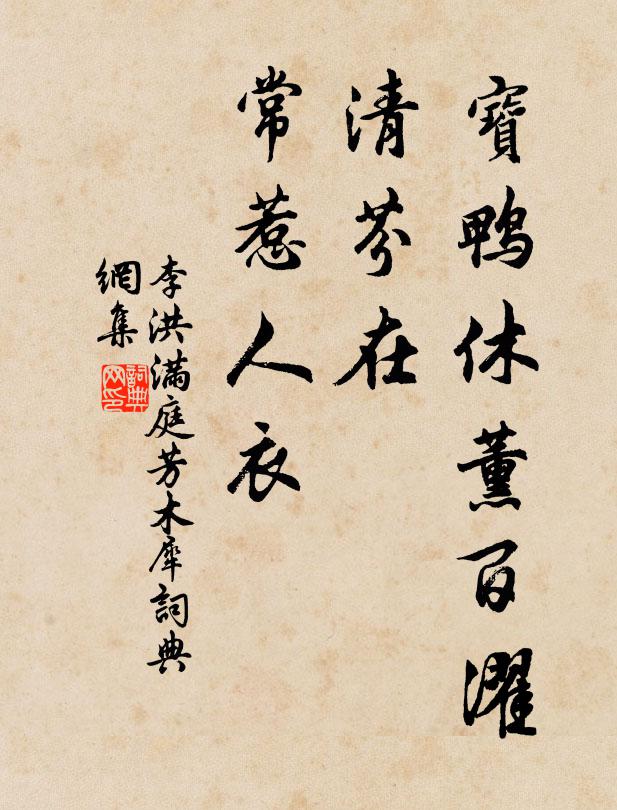 寶鴨休薰百濯
清芬在
常惹人衣
李洪滿庭芳木犀詞典
網集
詞典
网印